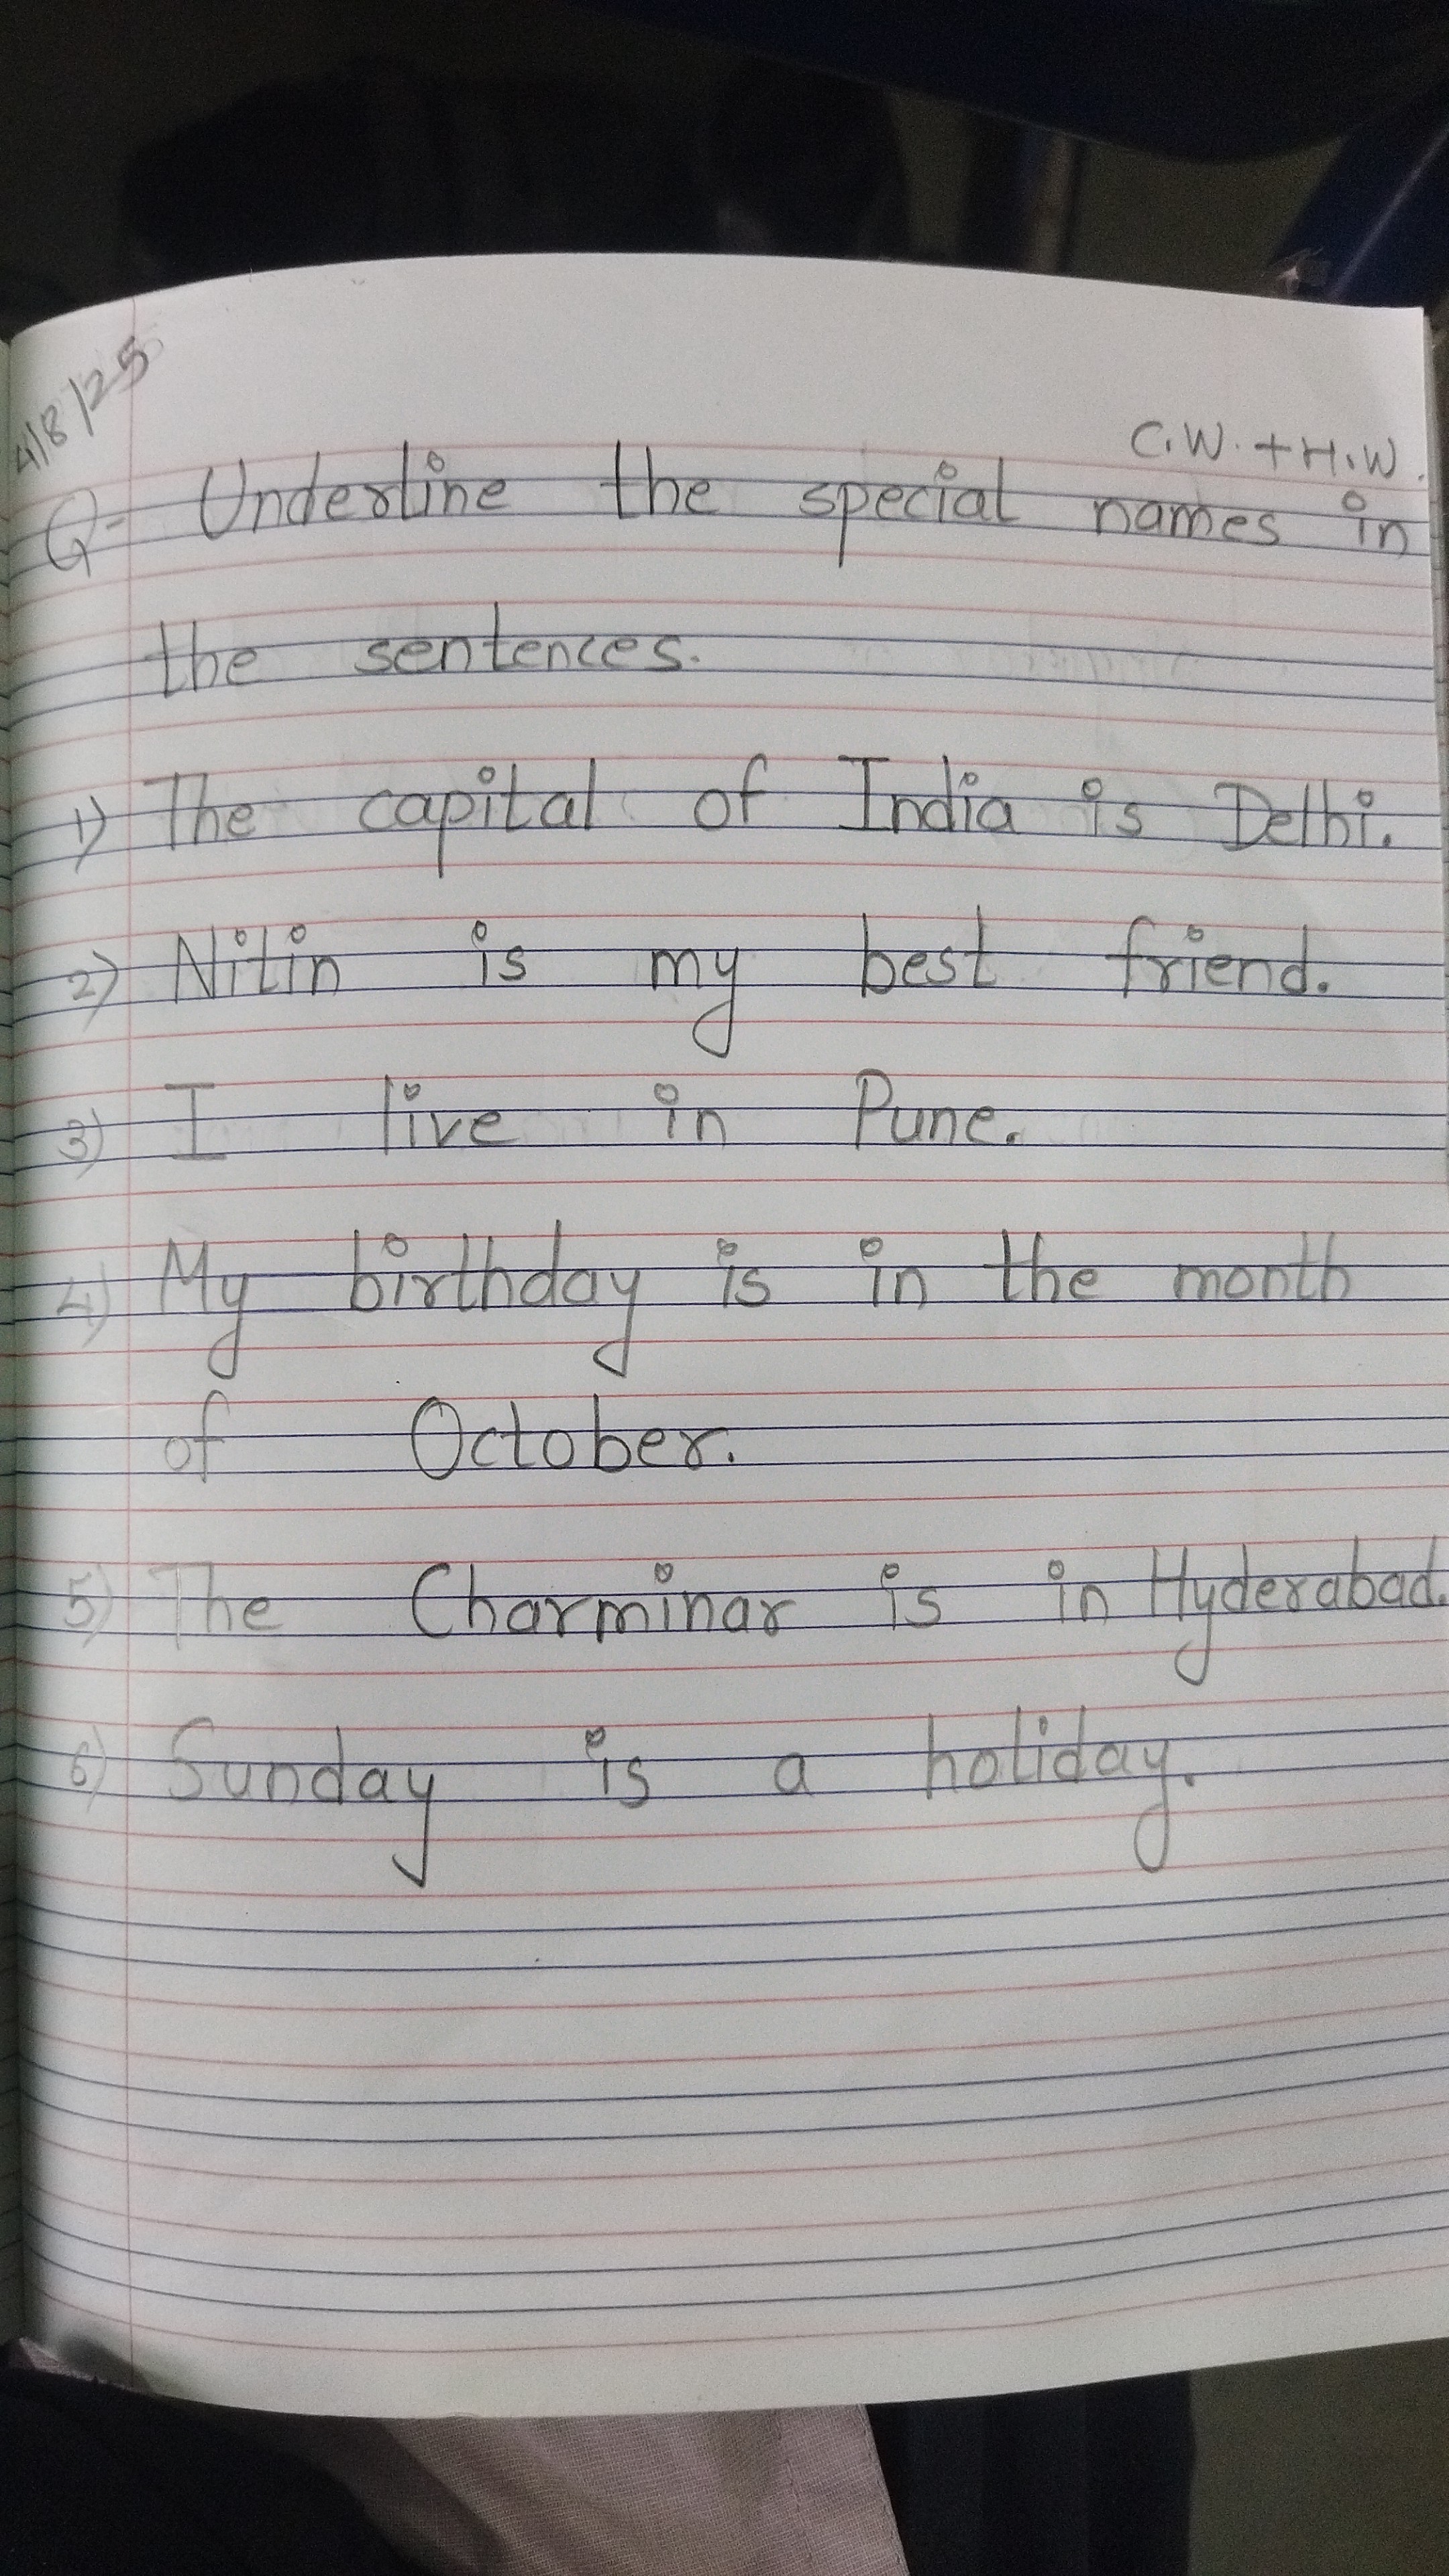 4/8/25
C.W. + H.W.
Q- Underline the special names in
the sentences.
1) The capital of India is Delhi.
2) Nitin is my best friend.
3) I live in Pune.
4) My birthday is in the month
of October.
5) The Charminar is in Hyderabad.
6) Sunday is a holiday.